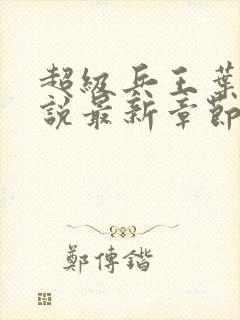 超級兵王葉
說最新章節
鄭傳鍇